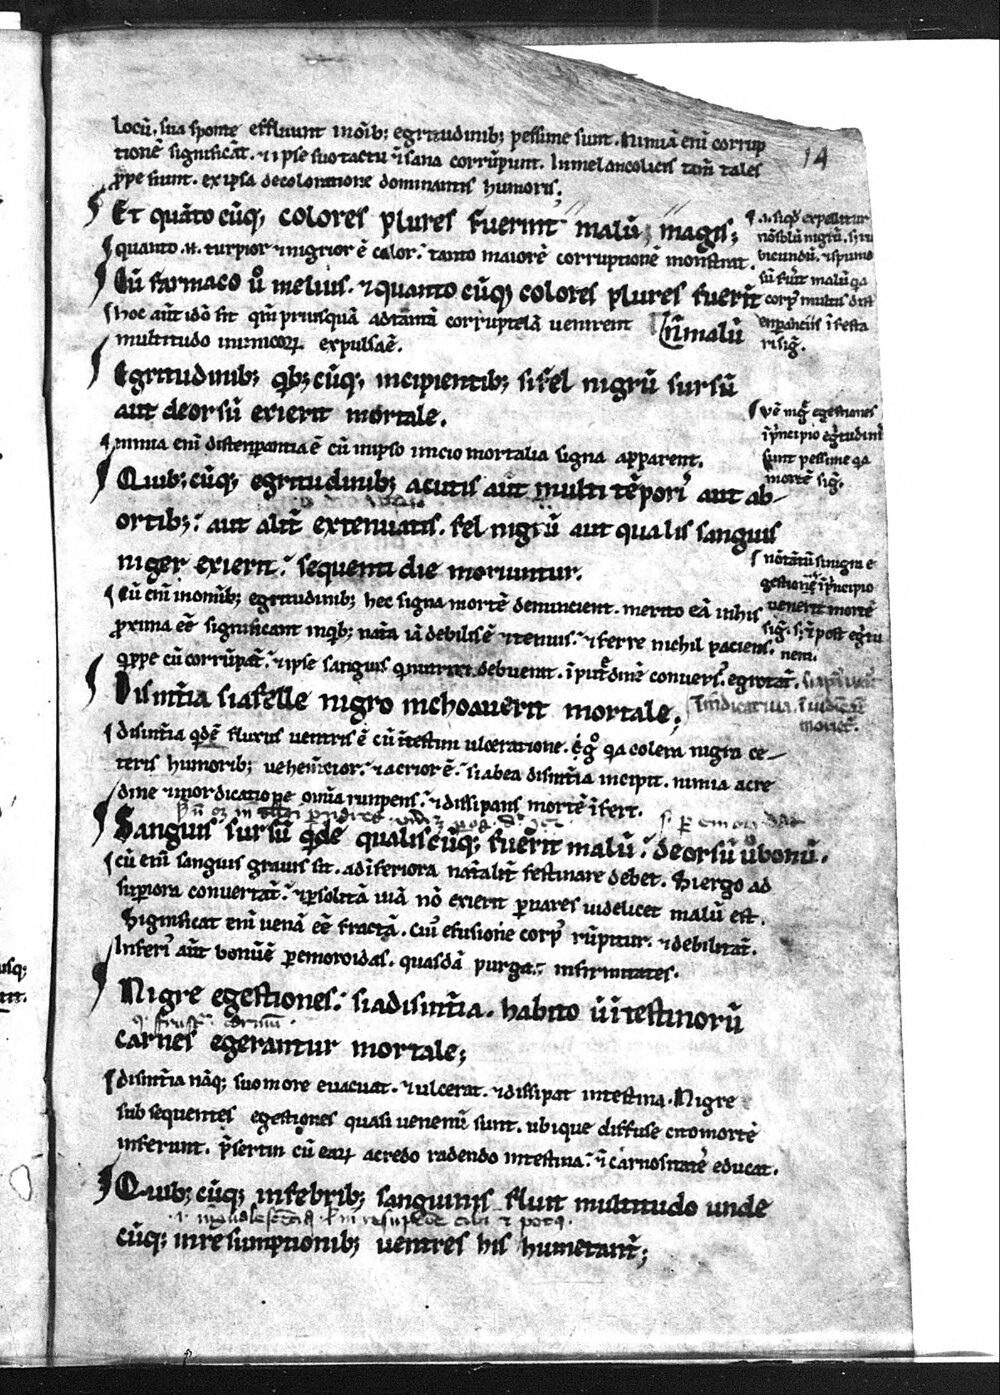 locū. sua sponte effluunt inoīb; egritudinib; pessime sunt. Nimiā enī corrup
tionē significāt. ⁊ ipse suo tactu ī sana corrūpunt. In melancolicis tam̄ tales
ꝓpe fiunt. ex ipsa decoloratione dominantis humoris.
Et quāto cūq; colores plures fuerint malū magis;
quanto .n. turpior ⁊ nigrior ē calor. tanto maiorē corruptionē monstrat.
Cū farmaco ů melius. ⁊ quanto cūq; colores plures fuerīt
hoc aūt idō fit qm̄ priusquā ad tantā corruptelā uenirent
n̄ malū
multitudo inimicoꝝ expulsa ē.
Egritudinib; qb; cūq; incipientib; si fel nigrū sursū
aut deorsū exierit mortale.
nimia enī distenpantia ē cū in ipso inicio mortalia signa apparent.
Quib; cūq; egritudinib; acutis aūt multi tēporis aut ab-
ortib; aut alit̄ extenuatis. fel nigrū aut qualis sanguis
niger exierit. sequenti die moriuntur.
Cū enī in omīb; egritudinib; hec signa mortē denuncient. merito eā in his
ꝓxima eē significant in qb; nat̄a iā debilis ē ⁊ tenuis. ⁊ ferre nichil paciens.
qꝓpe cū corrūpat̄. ⁊ ipse sanguis q nutrire debuerat. ī putdinē conuers. egrotat̄.
Disint̄ia si a felle nigro inchoauerit mortale.
disint̄ia qdē fluxus uentris ē cū ītestini ulceratione. q̇ colera nigra ce-
teris humorib; uehem̄cior ⁊ acrior ē. si ab ea disint̄ia incipit. nimia acre
dine ⁊ mordicatiōe omia runpens ⁊ dissipans mortē īfert.
Sanguis sursū qde qualiscūq; fuerit malū. deorsū ů bonū.
cū enī sanguis grauis sit. ad īferiora nat̄alit̄ festinare debet. Si ergo ad
supiora conuertat̄. ⁊ ꝑ solitā uiā nō exierit ꝑ nares uidelicet malū est.
Significat enī uenā eē fractā. cui efusione corp rūpitur. ⁊ debilitat̄.
Inferi aūt bonū ē ꝑ emoroidas. quasdā purgat infirmitates.
Nigre egestiones. si a disint̄ia. habito ū ītestinorū
carnes egerantur mortale;
disint̄ia nāq; suo more euacuat. ⁊ ulcerat. ⁊ dissipat intestina. Nigre
sub sequentes egestiones quasi uenenū sunt. ubique diffuse cito mortē
inferunt. p̄sertin cū eaꝝ acredo radendo intestina. ī carnositatē educat.
Quib; cūq; in febrib; sanguinis fluit multitudo unde
cūq; in resumptionib; uentres his humetant̄;
14
.i. siqd expellitur
nō solū nigrū. s; ru
bicundū. ⁊ spumo
sū fuīt malū qa
corp multis dist
enpanciis īfesta
ri sig̅.
Vē nig̅ egestiones
ī pncipio eg̅tudinī
sunt pessime qa
mortē sig̅.
nō tātū si nigra e
gestionē ī pncipio
uenerit mortē
sig̅. s; ī post eg̅tu
nem.